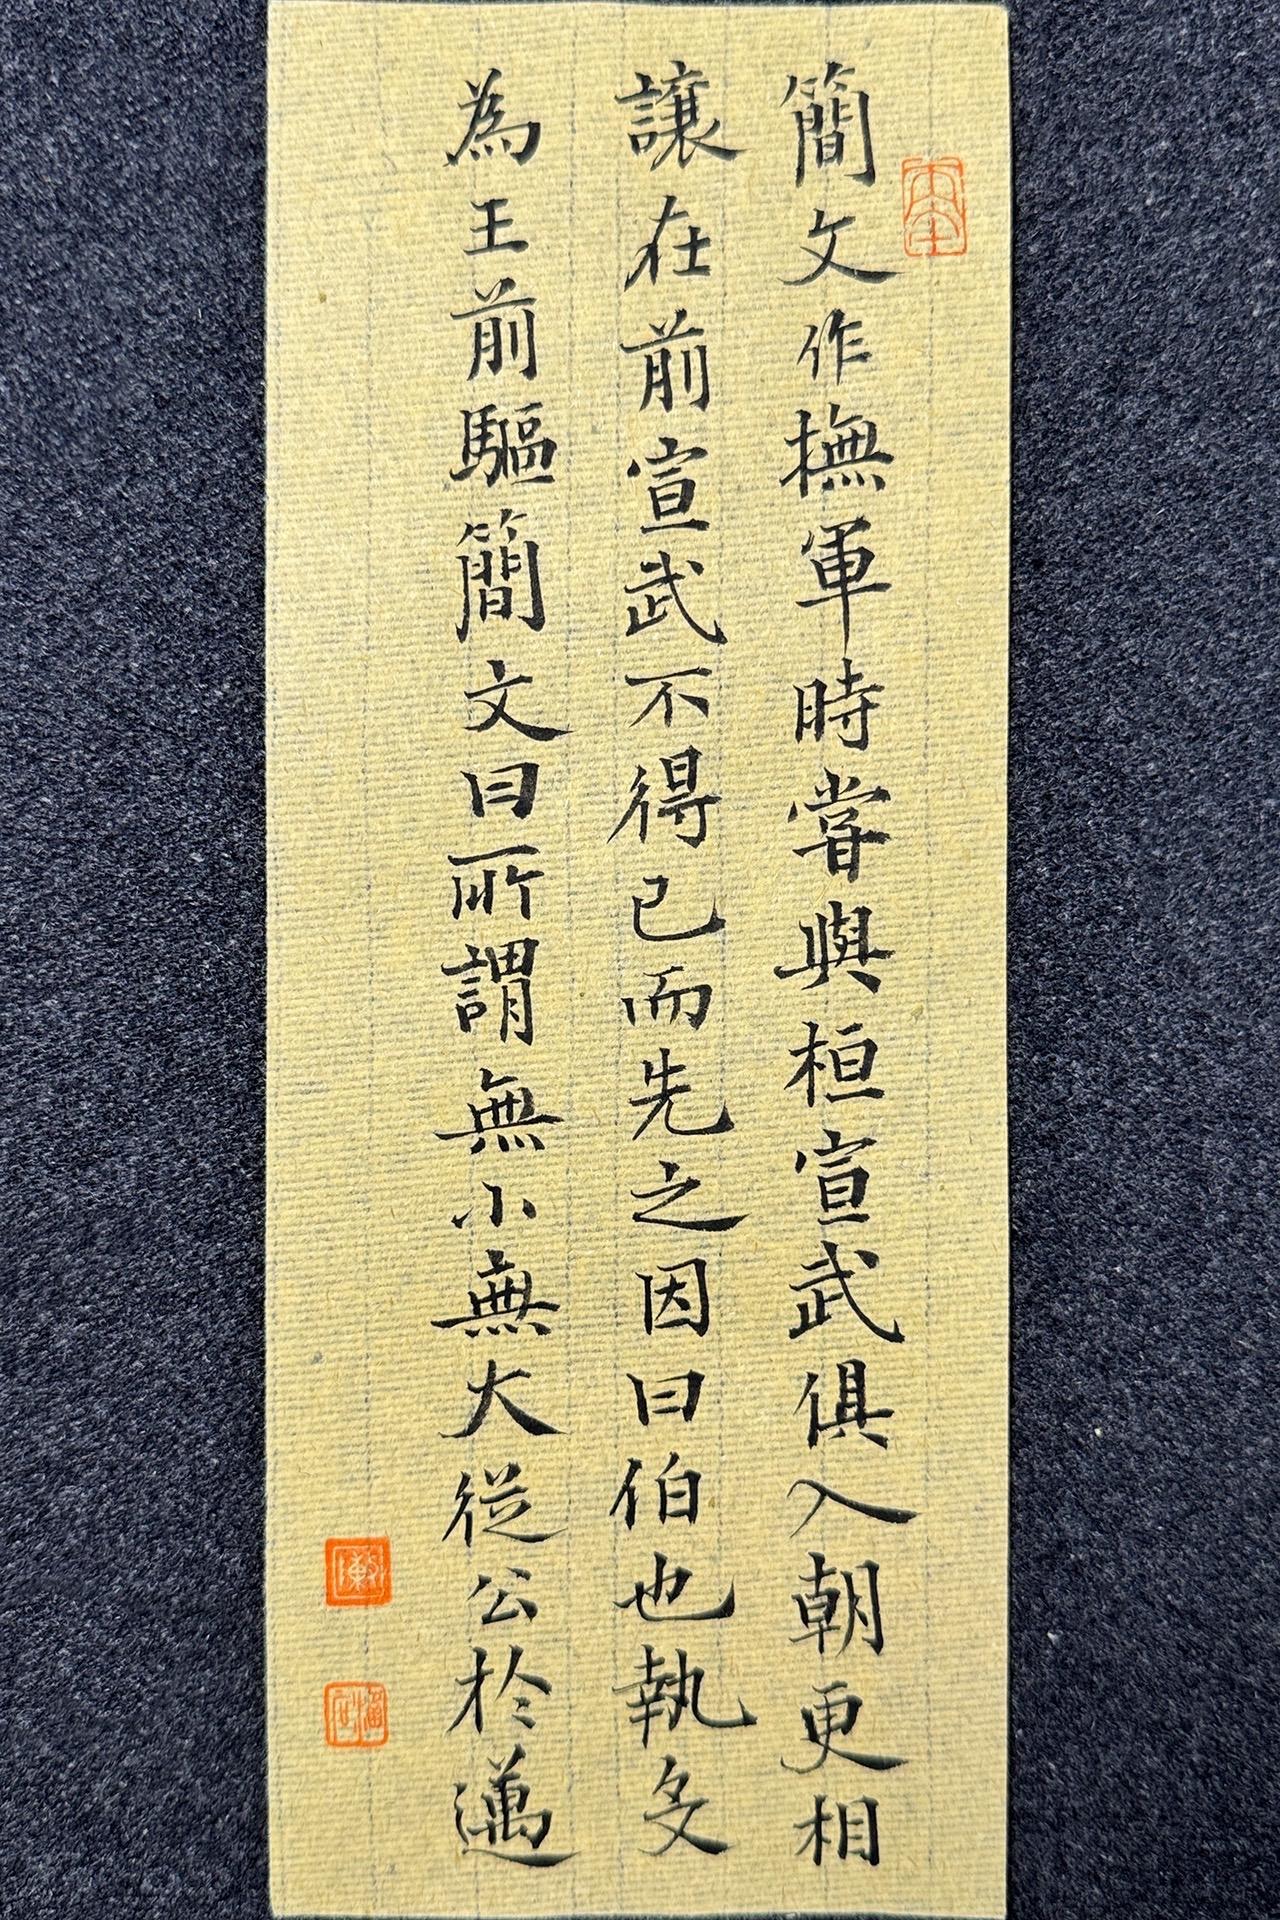 簡文作撫軍時嘗與桓宣武俱入朝更相
讓在前宣武不得已而先之因曰伯也執殳
為王前驅簡文曰所謂無小無大從公於邁